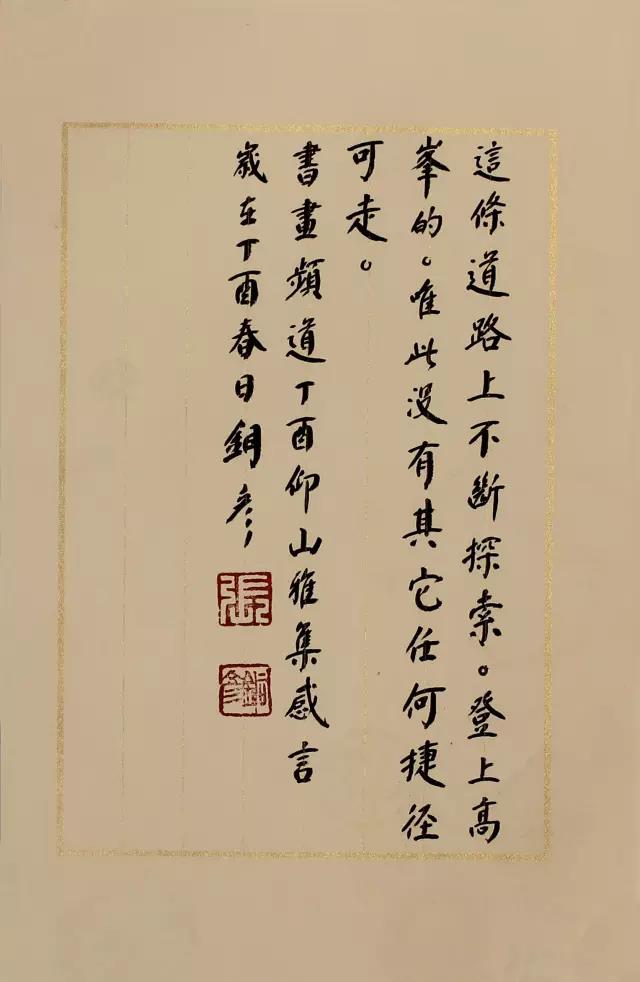 這條道路上不斷探索。登上高
峯的。唯此没有其它任何捷径
可走。
書畫頻道丁酉仰山雅集感言
歲在丁酉春日銅彦
張
銅彦